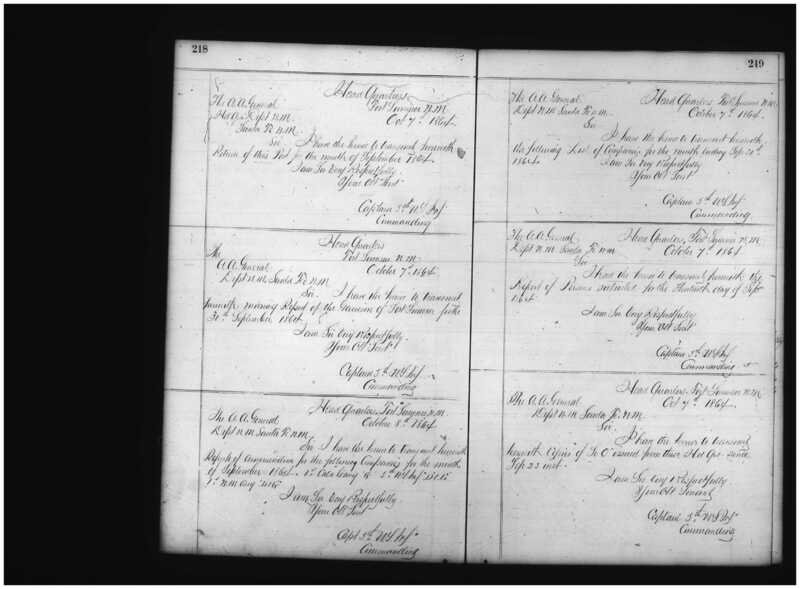 218
Head Quarters
Fort Sumner N.M.
Oct 7th 1864
The A.A. General
Hd Qrs Dept N.M.
Santa Fe N.M.
Sir I have the honor to transmit herewith
Return of this Post for the month of September 1864
I am Sir Very Respectfully
Your Obt Servt
Captain 5th US Inf
Commanding
Head Quarters
Fort Sumner N.M.
October 7th 1864
The
A.A. General
Dept N.M. Santa Fe N.M.
Sir. I have the honor to transmit
herewith morning Report of the Garrison of Fort Sumner for the
30th September 1864
I am Sir Very Respectfully
Your Obt Servt
Captain 5th US Inf
Commanding
Head Quarters, Fort Sumner N.M.
October 8th 1864
The A.A. General
Dept N.M. Santa Fe N.M.
Sir I have the honor to transmit herewith
Reports of Ammunition for the following Companies for the month
of September 1864 1st Cala Cavy 5th US Inf
1st N.M. Cavy
I am Sir Very Respectfully
Your Obt Servt
Capt 5th US Inf
Commanding
219
Head Quarters Fort Sumner N.M.
October 7th 1864
The A.A. General
Dept N.M. Santa Fe N.M.
Sir
I have the honor to transmit herewith
the following List of Companies for the month ending Sep. 30th
1864
I am Sir Very Respectfully
Your Obt Servt
Captain 5th US Inf
Commanding
Head Quarters, Fort Sumner N.M.
October 7th 1864
The A.A. General
Dept N.M. Santa Fe N.M.
Sir
I have the honor to transmit herewith the
Report of Persons for the Thirtieth day of Sept
1864
I am Sir Very Respectfully
Your Obt Servt
Captain 5th US Inf
Commanding
Head Quarters, Fort Sumner N.M.
Oct 7th 1864
The A.A. General
Dept N.M. Santa Fe. N.M.
Sir.
I have the honor to transmit
herewith Copies of issued from these Hd Qrs since
Sep 23 inst
I am Sir Very Respectfully
Your Obt Servant
Captain 5th US Inf
Commanding